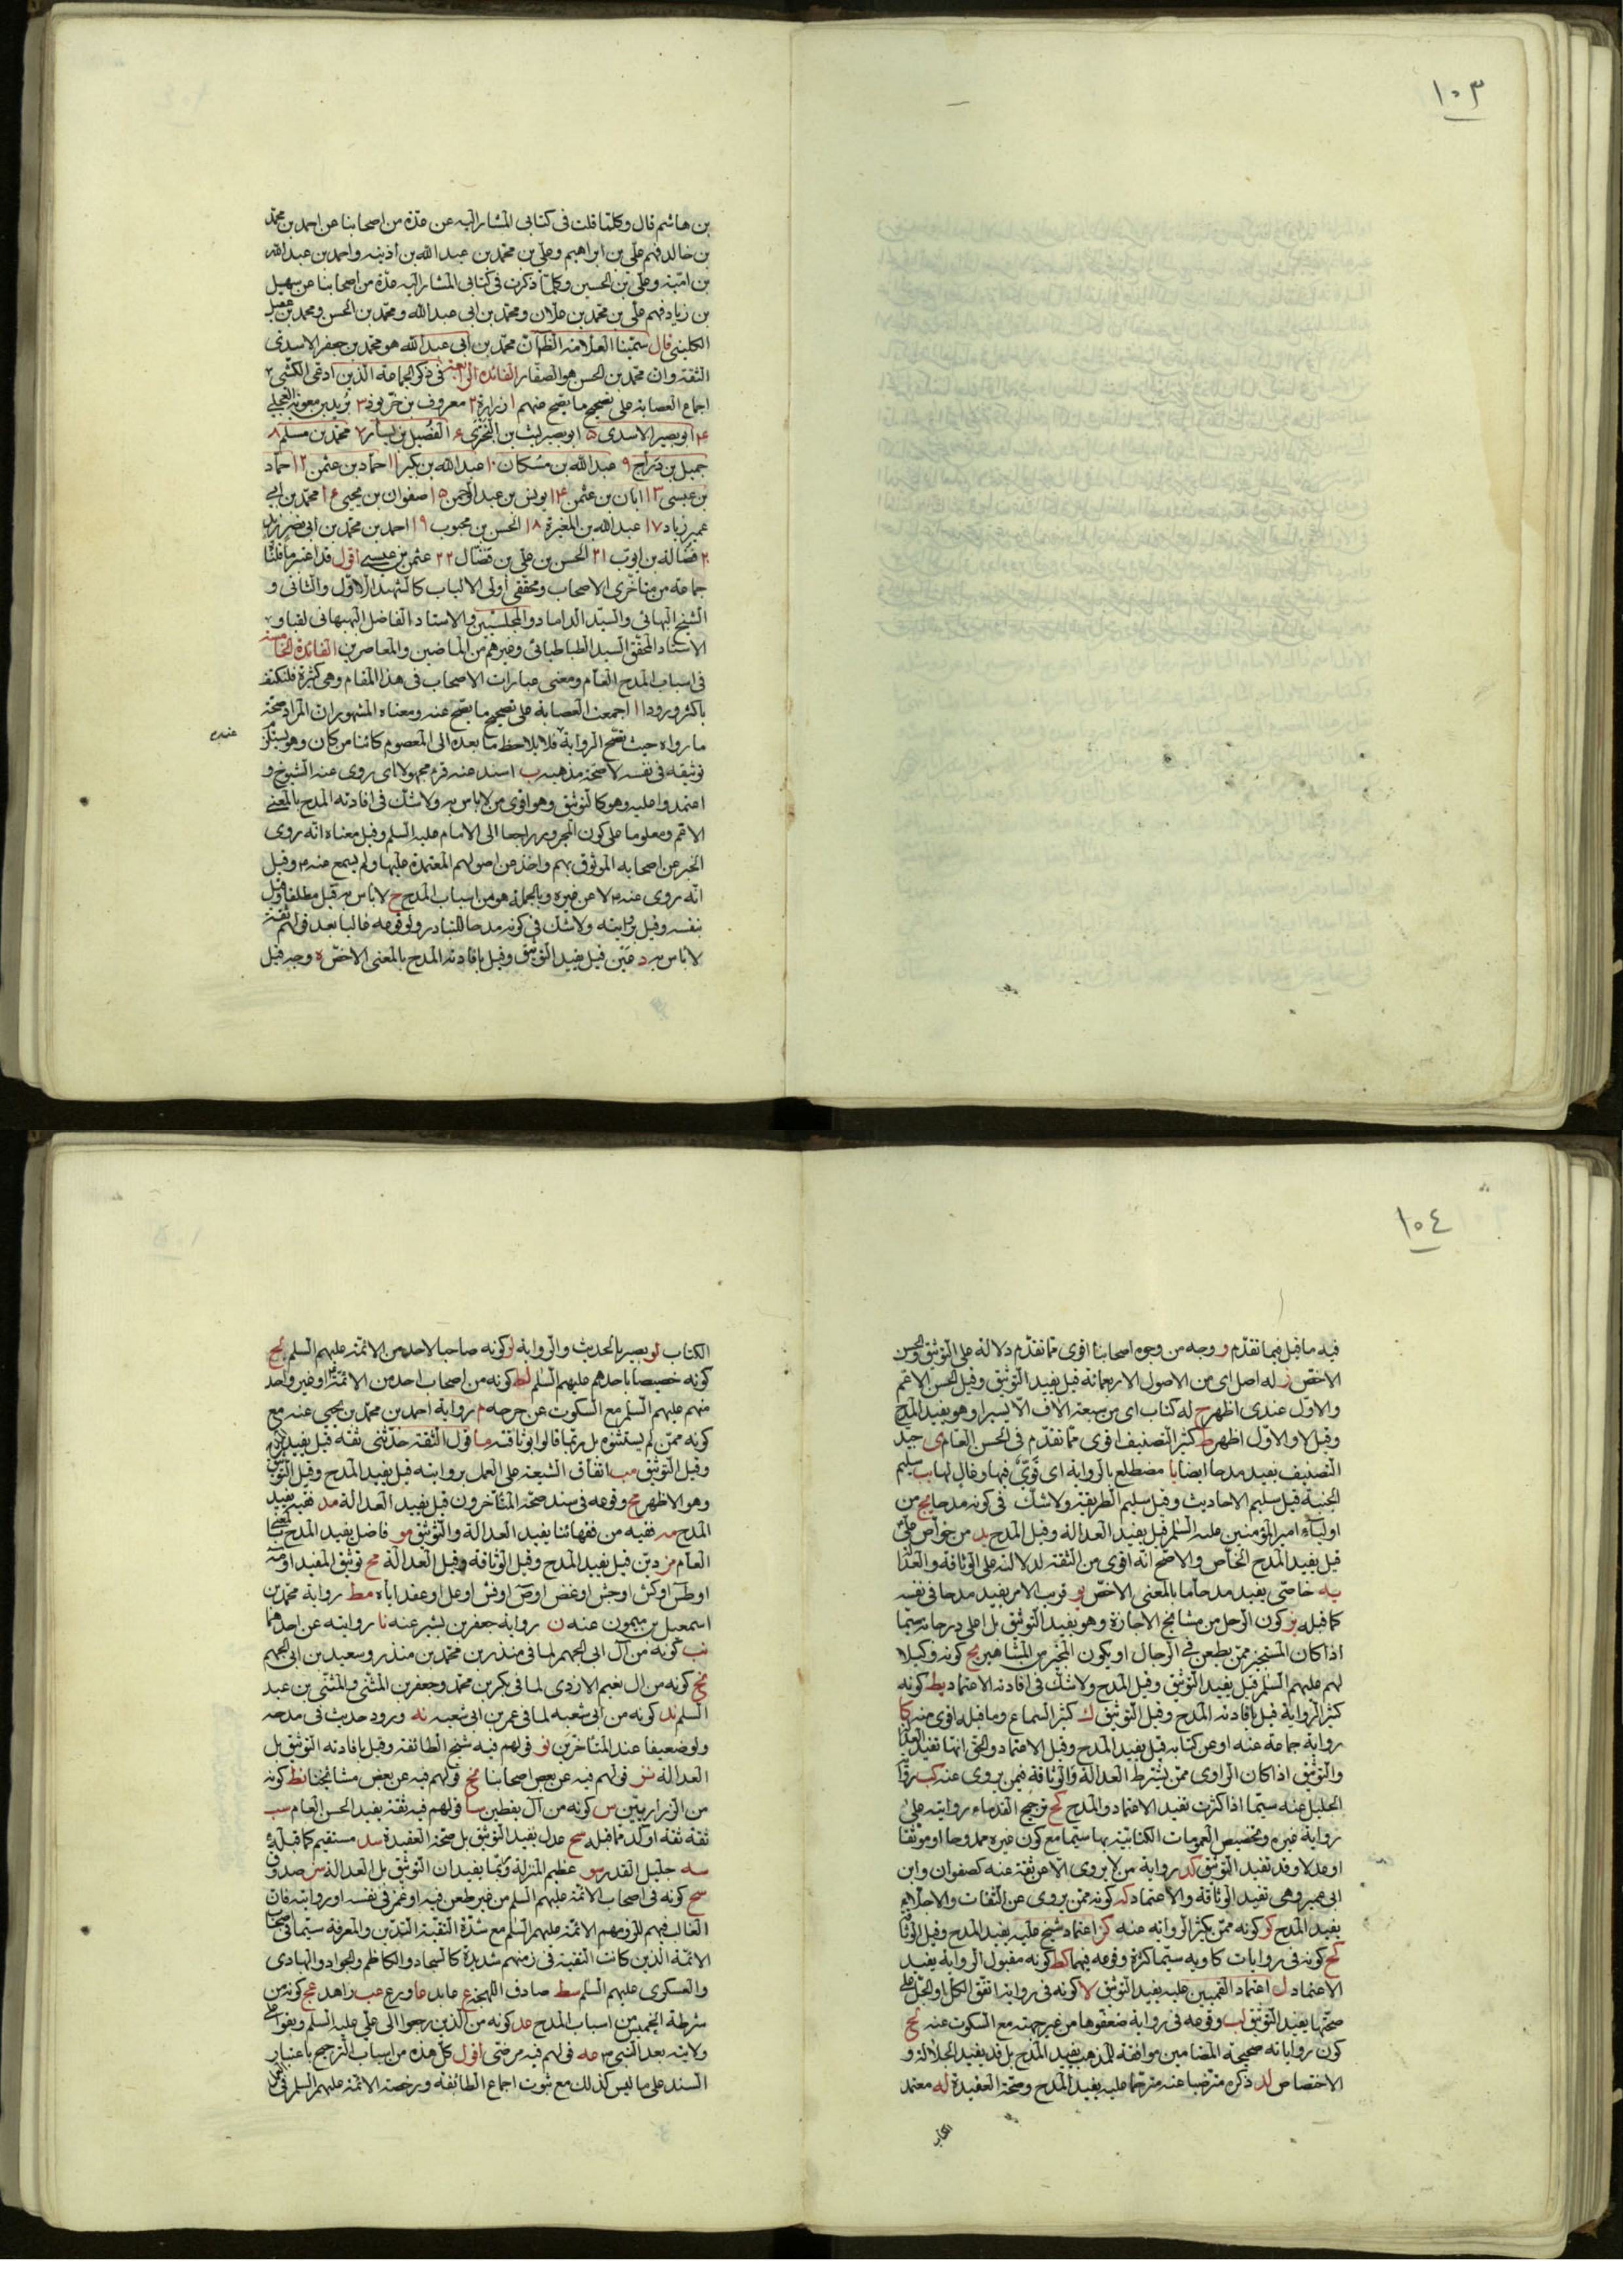 ١٠٣
بن هاشم قال وكلما قلت فى كتابى المشار اليه عن عدة من اصحابنا عن احمد بن محمد
بن خالد فهم على بن ابراهيم وعلى بن محمد بن عبد الله بن اذينه واحمد بن عبد الله
بن امية وعلى بن الحسين وكلما ذكرت فى كتابى المشار اليه عدة من اصحابنا عن سهيل
بن زياد فهم على بن محمد بن علان ومحمد بن ابى عبد الله ومحمد بن الحسن ومحمد بن عقيل
الكلينى قال سمينا العلامة الظهان محمد بن ابى عبد الله هو محمد بن جعفر الاسدى
الثقة وان محمد بن الحسن هو الصفار الفائدة الرابعة فى ذكر الجماعة الذين ادعى الكشى
اجماع العصابة على تصحيح ما يصح عنهم ١ زرارة ٢ معروف بن خربوذ ٣ بريد بن معوية العجلى
۴ ابو بصير الاسدى ۵ ابو بصير ليث بن البخترى ۶ الفضيل بن يسار ٧ محمد بن مسلم ٨
جميل بن دراج ٩ عبد الله بن مسكان ١٠ عبد الله بن بكير ١١ حماد بن عثمن ١٢ حماد
بن عيسى ١٣ ابان بن عثمن ١۴ يونس بن عبد الرحمن ١۵ صفوان بن يحيى ١۶ محمد بن ابى
عمير زياد ١٧ عبد الله بن المغيرة ١٨ الحسن بن محبوب ١٩ احمد بن محمد بن ابى نصر
٢٠ فضالة بن ايوب ٢١ الحسن بن على بن فضال ٢٢ عثمن بن عيسى اقول قد اعتبر ما قلنا
جماعة من متاخرى الاصحاب ومحققى اولى الالباب كالشهيد الاول والثانى و
الشيخ البهائى والسيد الداماد والمجلسيين والاستاد الفاضل البهبهانى
الاستاد المحقق السيد الطباطبائى وغيرهم من الماضين والمعاصرين الفائدة الخامسة
فى اسباب المدح العام ومعنى عبارات الاصحاب فى هذا المقام وهى كثيرة فلنكتف
باكثر ورودا ا اجمعت العصابة على تصحيح ما يصح عنه ومعناه المشهور ان المراد صحة
ما رواه حيث تصح الرواية فلا يلاحظ ما بعده الى المعصوم كائنا من كان وهو يستلزم
عنده
توثيقه فى نفسه لا صحة مذهبه ب اسند عنه قرم مجهولا اى روى عنه الشيوخ و
اعتمدوا عليه وهو كالتوثيق وهو اقوى من لا باس به ولا شك فى افادته المدح بالمعنى
الاعم ومعلوما على كون المجرور راجعا الى الامام عليه السلم وقيل معناه انه روى
الخبر عن اصحابه الموثوق بهم واخذ من اصولهم المعتمدة عليها ولم يسمع منه م وقيل
انه روى عنه م لا عن غيره وبالجملة هو من اسباب المدح ج لا باس به قيل مطلقا وقيل
بنفسه وقيل بروايته ولا شك فى كونه مدحا للتبادر ولوقوعه غالبا بعد قولهم ثقة
لا باس به د عين قيل يفيد التوثيق وقيل بافادته المدح بالمعنى الاخص ه وجه قيل
١٠٤
فيه ما قيل فيما تقدم و وجه من وجوه اصحابنا اقوى مما تقدم دلالة على التوثيق والحسن
الاخص ز له اصل اى من الاصول الاربعمائة قيل يفيد التوثيق وقيل الحسن الاعم
والاول عندى اظهر ح له كتاب اى من سبعة الاف الا يسيرا وهو يفيد المدح
وقيل لا والاول اظهر ط كثير التصنيف اقوى مما تقدم فى الحسن العام ى جيد
التصنيف يفيد مدحا ايضا يا مضطلع بالرواية اى قوى فيها وقال لها يب سليم
الجنبة قيل سليم الاحاديث وقيل سليم الطريقة ولا شك فى كونه مدحا يج من
اولياء امير المؤمنين عليه السلم قيل يفيد العدالة وقيل المدح يد من خواص على
قيل يفيد المدح الخاص والاصح انه اقوى من الثقة لدلالته على الوثاقة والعدالة
يه خاصى يفيد مدحا ما بالمعنى الاخص يو قريب الامر يفيد مدحا فى نفسه
كما قبله يز كون الرجل من مشايخ الاجازة وهو يفيد التوثيق بل اعلى درجاته سيما
اذا كان المستجيز ممن يطعن فى الرجال او يكون المجيز من المشاهير يح كونه وكيلا
لهم عليهم السلم قيل يفيد التوثيق وقيل المدح ولا شك فى افادته الاعتماد يط كونه
كثير الرواية قيل بافادته المدح وقيل التوثيق ك كثير السماع وما قبله اقوى منه كا
رواية جماعة عنه او عن كتابه قيل يفيد المدح وقيل الاعتماد والحق انها تفيد العدالة
والتوثيق اذا كان الراوى ممن يشترط العدالة والوثاقة فيمن يروى عنه كب رواية
الجليل عنه سيما اذا كثرت تفيد الاعتماد والمدح كج ترجيح القدماء روايته على
رواية غيره وتخصيص العمومات الكتابية بها سيما مع كون غيره ممدوحا او موثقا
او عدلا وقد تفيد التوثيق كد رواية من لا يروى الا عن ثقة عنه كصفوان وابن
ابى عمير وهى تفيد الوثاقة والاعتماد كه كونه ممن يروى عن الثقات والاجلاء
يفيد المدح كو كونه ممن يكثر الرواية عنه كز اعتماد شيخ عليه يفيد المدح وقيل الوثاقة
كح كونه فى روايات كاويه سيما كثرة وقوعه فيها كط كونه مقبول الرواية يفيد
الاعتماد ل اعتماد القميين عليه يفيد التوثيق لا كونه فى رواية اتفق الكل او الجل على
صحتها يفيد التوثيق لب وقوعه فى رواية ضعفوها من غير جهته مع السكوت عنه لج
كون رواياته صحيحة المضامين موافقة للمذهب يفيد المدح بل قد يفيد الجلالة و
الاختصاص لد ذكره مترضيا عنه مترحما عليه يفيد المدح وصحة العقيدة له معتمد
الكتاب
الكتاب لو بصير بالحديث والرواية لز كونه صاحبا لاحد من الائمة عليهم السلم لح
كونه خصيصا باحدهم عليهم السلم لط كونه من اصحاب احد من الائمة او غير واحد
منهم عليهم السلم مع السكوت عن جرحه م رواية احمد بن محمد بن يحيى عنه مع
كونه ممن لم يستثنوه بل ربما قالوا بوثاقته ما قول الثقة حدثنى ثقة قيل يفيد المدح
وقيل التوثيق مب اتفاق الشيعة على العمل بروايته قيل يفيد المدح وقيل التوثيق
وهو الاظهر مج وقوعه فى سند صححه المتاخرون قيل يفيد العدالة مد فقيه يفيد
المدح مه فقيه من فقهائنا يفيد العدالة والتوثيق مو فاضل يفيد المدح بالمعنى
العام مز دين قيل يفيد المدح وقيل الوثاقة وقيل العدالة مح توثيق المفيد او مة
او طس او كش او جش او غض او ص او فش او عل او عقد اياه مط رواية محمد بن
اسمعيل بن ميمون عنه ن رواية جعفر بن بشير عنه نا روايته عن احدهما
نب كونه من آل ابى الجهم لما فى منذر بن محمد بن منذر وسعيد بن ابى الجهم
نج كونه من ال نعيم الازدى لما فى بكر بن محمد وجعفر بن المثنى والمثنى بن عبد
السلم ند كونه من ابى شعبه لما فى عمر بن ابى شعبه نه ورود حديث فى مدحه
ولو ضعيفا عند المتاخرين نو قولهم فيه شيخ الطائفة وقيل بافادته التوثيق بل
العدالة نز قولهم فيه عن بعض اصحابنا نح قولهم فيه عن بعض مشايخنا نط كونه
من الزراريين س كونه من آل يقطين سا قولهم فيه ثقة يفيد الحسن العام سب
ثقة ثقة اوكد مما قبله سج عدل يفيد التوثيق بل صحة العقيدة سد مستقيم كما قبله
سه جليل القدر سو عظيم المنزلة وربما يفيدان التوثيق بل العدالة سز صدوق
سح كونه فى اصحاب الائمة عليهم السلم من غير طعن فيه او غمز فى نفسه او روايته فان
الغالب فهم للزومهم الائمة عليهم السلم مع شدة التقية التدين والمعرفة سيما فى اصحاب
الائمة الذين كانت التقية فى زمنهم شديدة كالسجاد والكاظم والجواد والهادى
والعسكرى عليهم السلم سط صادق اللهجة ع عابد عا ورع عب زاهد عج كونه من
شرطة الخميس من اسباب المدح عد كونه من الذين رجعوا الى على عليه السلم وبقوا على
ولايته بعد النبى ص عه قولهم فيه مرضى اقول كل هذه من اسباب الترجيح باعتبار
السند على ما ليس كذلك مع ثبوت اجماع الطائفة ورخصة الائمة عليهم السلم فى